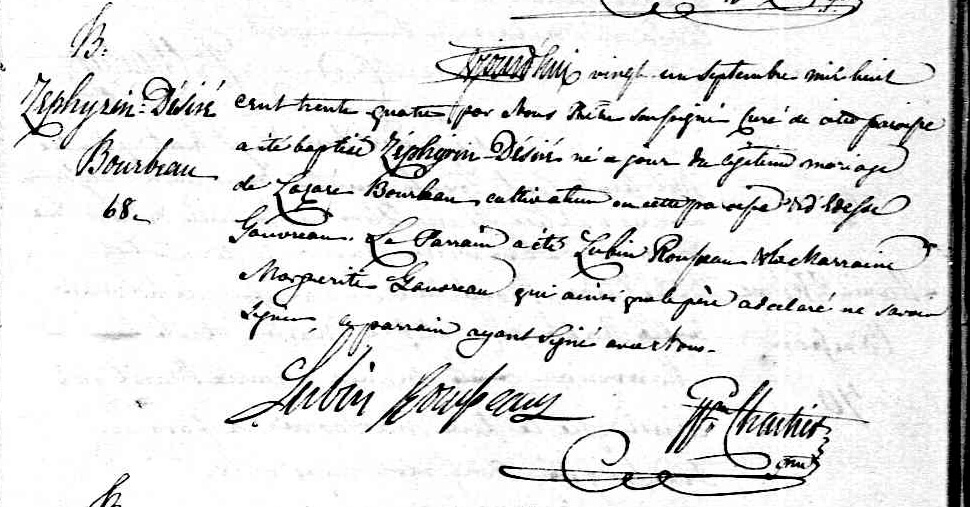 B.
Zéphyrin-Désiré
Bourbeau
68.
Aujourd'hui vingt un septembre mil huit
cent trente quatre par Nous Ptre soussigné curé de cette paroisse
a été baptisé Zéphyrin-Désiré né ce jour du légitime mariage
de Lazare Bourbeau cultivateur en cette paroisse & d'
Gauvreau. Le Parrain a été Lubin Rousseau & la Marraine
Marguerite Gauvreau qui ainsi que le père a déclaré ne savoir
signer le parrain ayant signé avec Nous.
Lubin Rousseau
Chartier
B